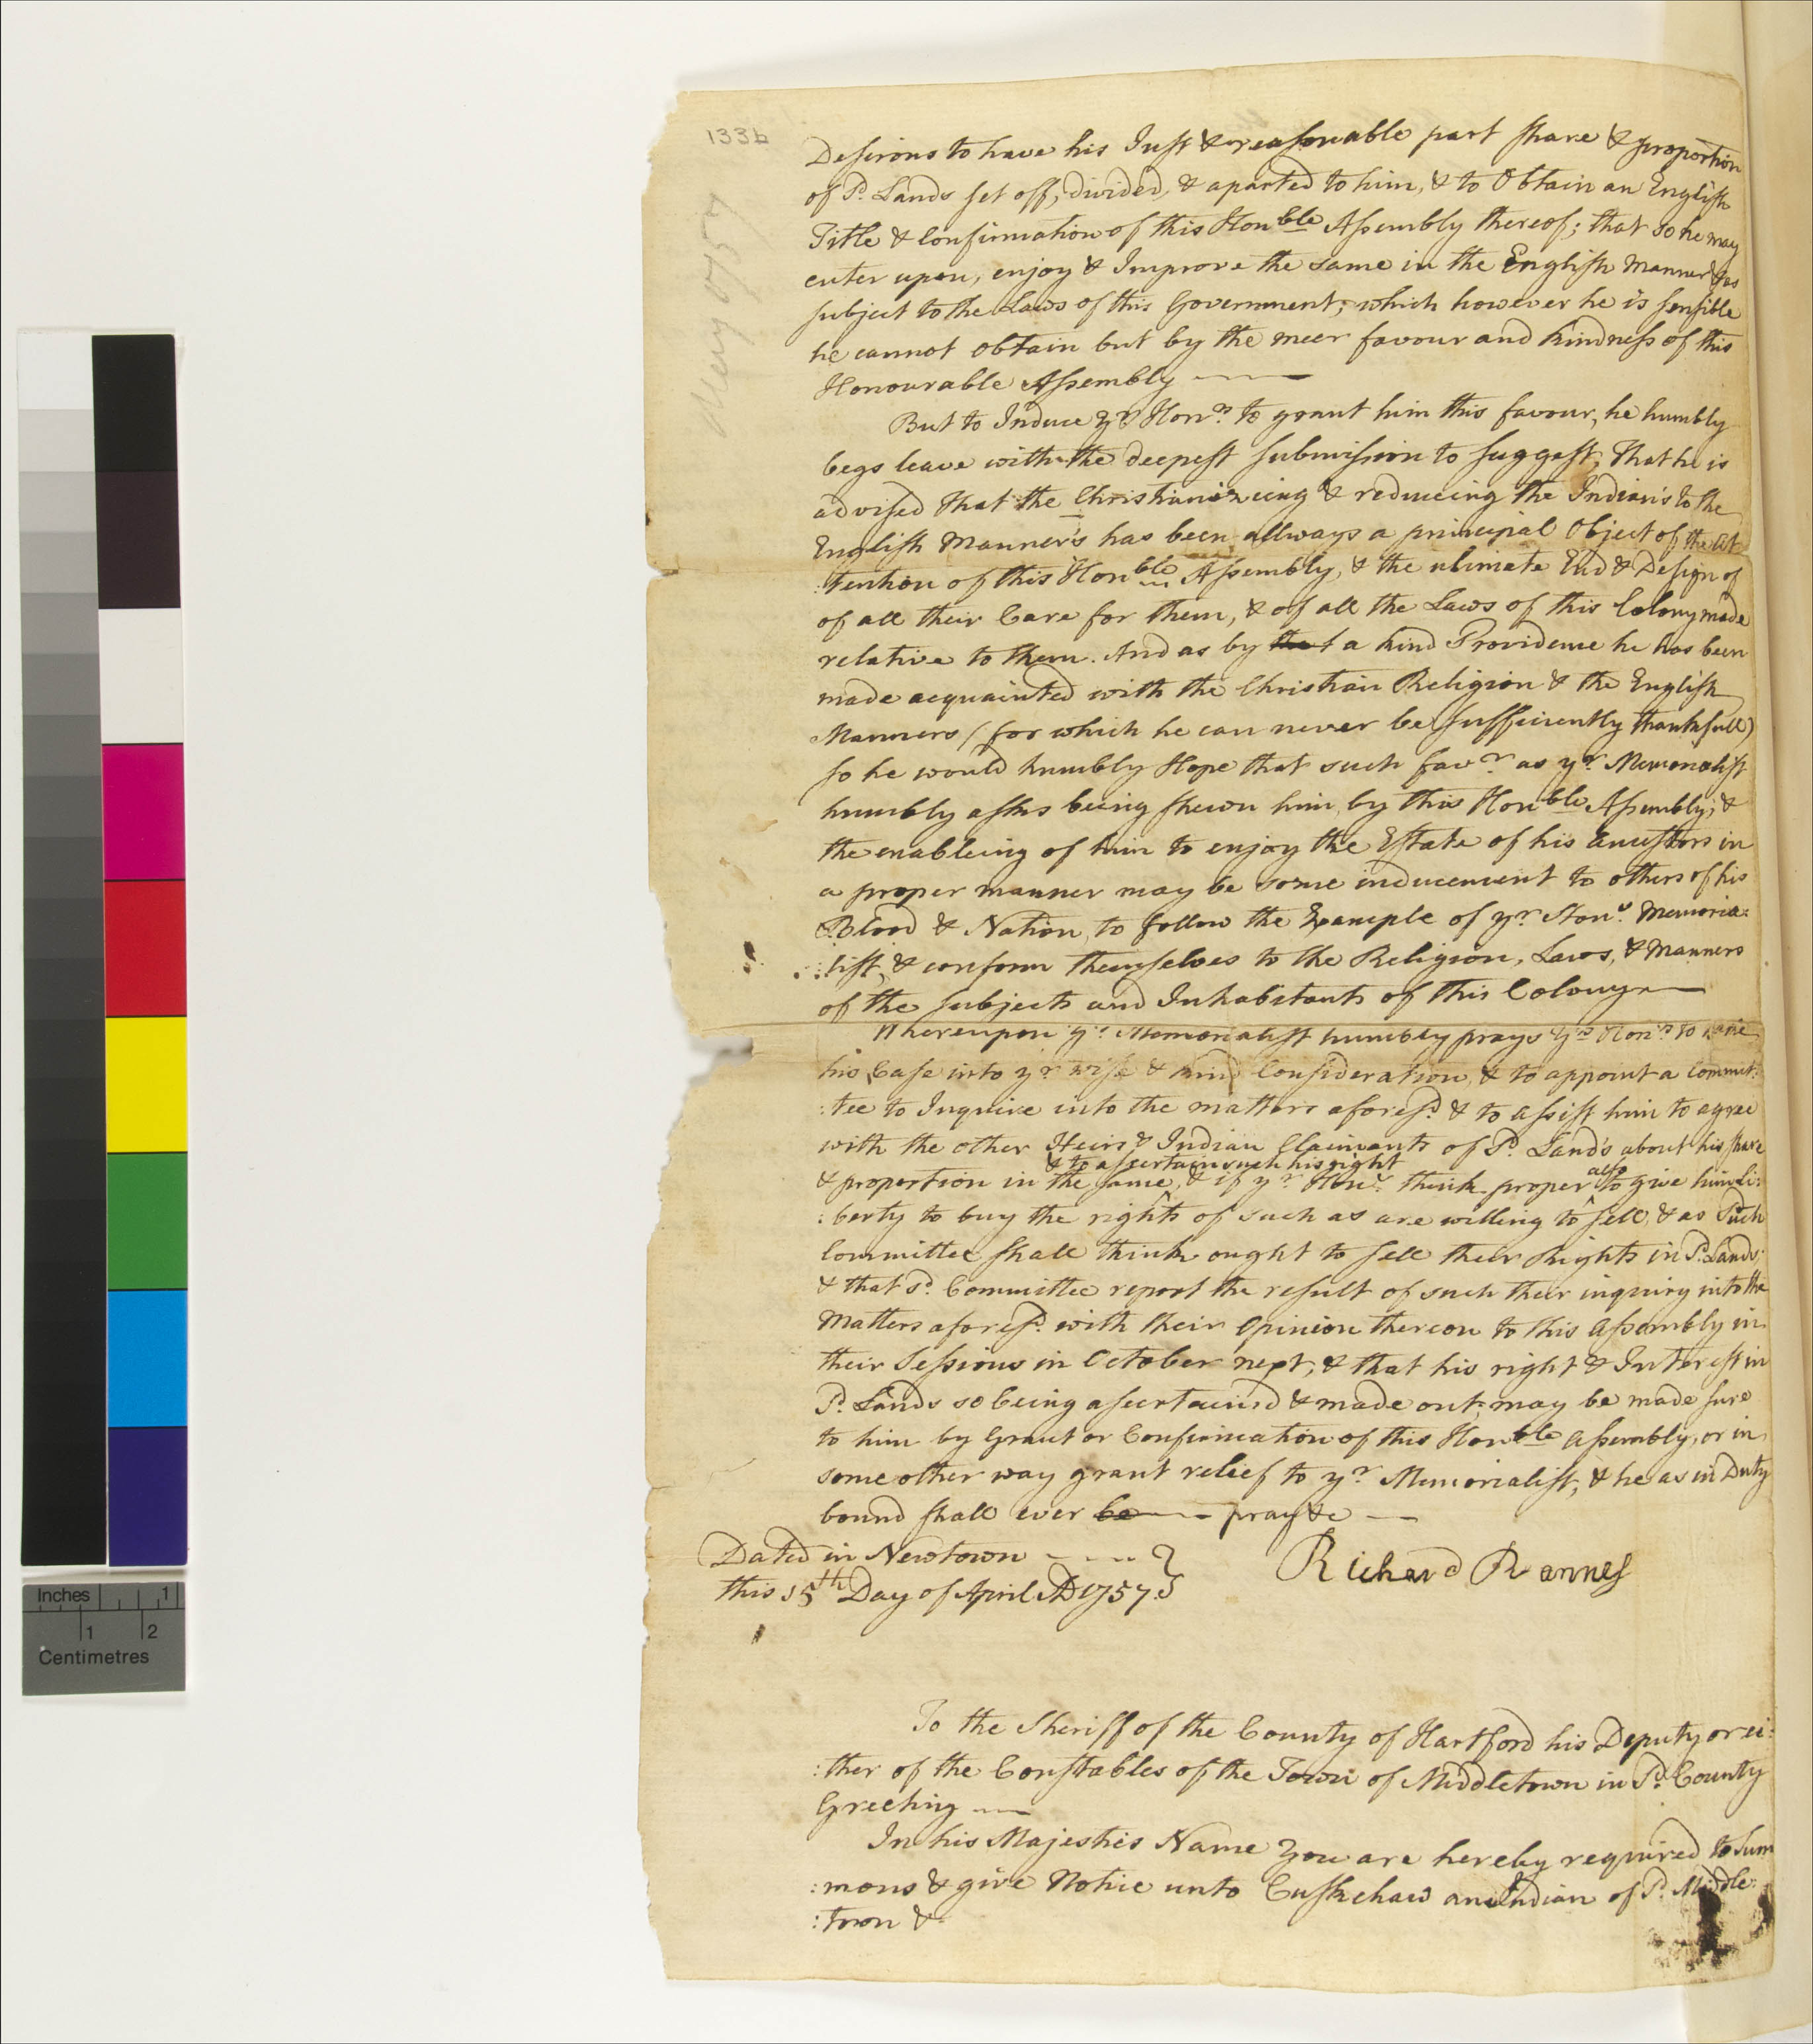 133b
May 1757
Desirous to have his Just & reasonable part share & proportion
of sd. Lands set off, divided, & aparted to him, & to Obtain an English
Title & Confirmation of this Honble Assembly thereof; that so he may
enter upon, enjoy & Improve the same in the English Manner & as
subject to the Laws of this Government; which however he is sensible
he cannot obtain but by the meer favour and kindness of this
Honourable Assembly
But to Induce yr. Honrs. to grant him this favour, he humbly
begs leave with the deepest submission to suggest, That he is
advised that the Christianizeing & reduceing the Indian's to the
English Manner's has been allways a principal Object of the At
:tention of this Honble Assembly, & the ulimate End & Design of
of all their Care for them, & of all the Laws of this Colony made
relative to them. And as by that a kind Providence he has been
made acquainted with the Christian Religion & the English
Manners (for which he can never be sufficiently thankfull)
so he would humbly Hope that such favr. as yr. Memorialist
humbly asks being shewn him, by this Honble Assembly; &
the enableing of him to enjoy the Estate of his Ancestors in
a proper manner may be some inducement to others of his
Blood & Nation, to follow the Example of yr. Honrs. Memoria:
:list, & conform themselves to the Religion, Laws, & Manners
of the subjects and Inhabitants of this Colony
Whereupon yr. Memorialist humbly prays yr. Honrs. to take
his Case into yr. wise & kind Consideration, & to appoint a Commit:
:tee to Inquire into the matters aforesd. & to assist him to agree
with the other Heirs & Indian Claimants of sd. Land's about his share
& to assertain such his right
also
& proportion in the same, & if yr. Honrs. think proper to give him li:
:berty to buy the rights of such as are willing to sell, & as such
Committee shall think ought to sell their Rights in sd. Lands;
& that sd. Committee report the result of such their inquiry into the
Matters aforesd. with their Opinion thereon to this Assembly in
their Sessions in October next, & that his right & Interest in
sd. Lands so being asertained & made out, may be made sure
to him by Grant or Confirmation of this Honble Assembly, or in
some other way grant relief to yr. Memorialist, & he as in Duty
bound shall ever be pray &c
Dated in Newtown
this 15th Day of April AD 1757
Richard Rannes
To the Sheriff of the County of Hartford his Deputy or ei:
:ther of the Constables of the Town of Middletown in sd. County
Greeting
In his Majesties Name you are hereby required to sum
:mons & give Notice unto Cuschaw an Indian of sd. Middle:
:town &
Inches 1
1 2
Centimetres